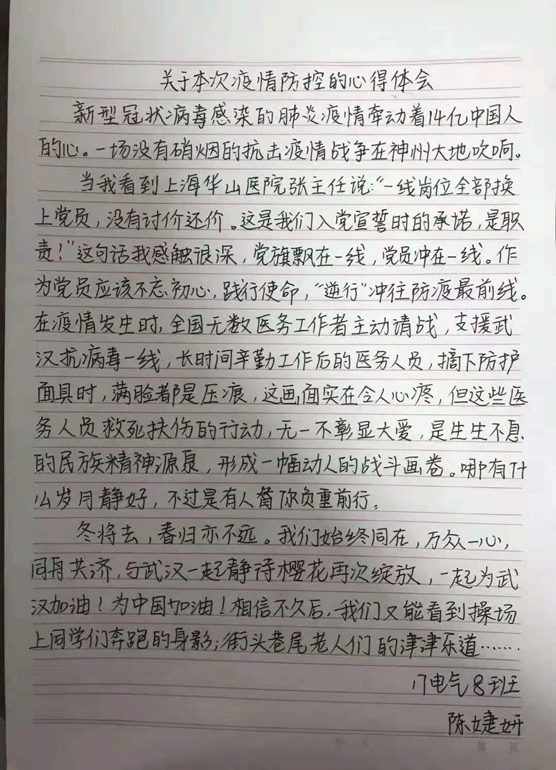 关于本次疫情防控的心得体会
新型冠状病毒感染的肺炎疫情牵动着14亿中国人
的心。一场没有硝烟的抗击疫情战争在神州大地吹响。
当我看到上海华山医院张主任说:“一线岗位全部换
上党员,没有讨价还价。这是我们入党宣誓时的承诺,是职
责!”这句话我感触很深,党旗飘在一线,党员冲在一线。作
为党员应该不忘初心,践行使命,“逆行”冲往防疫最前线。
在疫情发生时,全国无数医务工作者主动请战,支援武
汉抗病毒一线,长时间辛勤工作后的医务人员,摘下防护
面具时,满脸都是压痕,这画面实在令人心疼,但这些医
务人员救死扶伤的行动,无一不彰显大爱,是生生不息
的民族精神源泉,形成一幅动人的战斗画卷。哪有什
么岁月静好,不过是有人替你负重前行。
冬将去,春归亦不远。我们始终同在,万众一心,
同舟共济,与武汉一起静待樱花再次绽放,一起为武
汉加油!为中国加油!相信不久后,我们又能看到操场
上同学们奔跑的身影;街头巷尾老人们的津津乐道……
17电气8班
陈婕妍